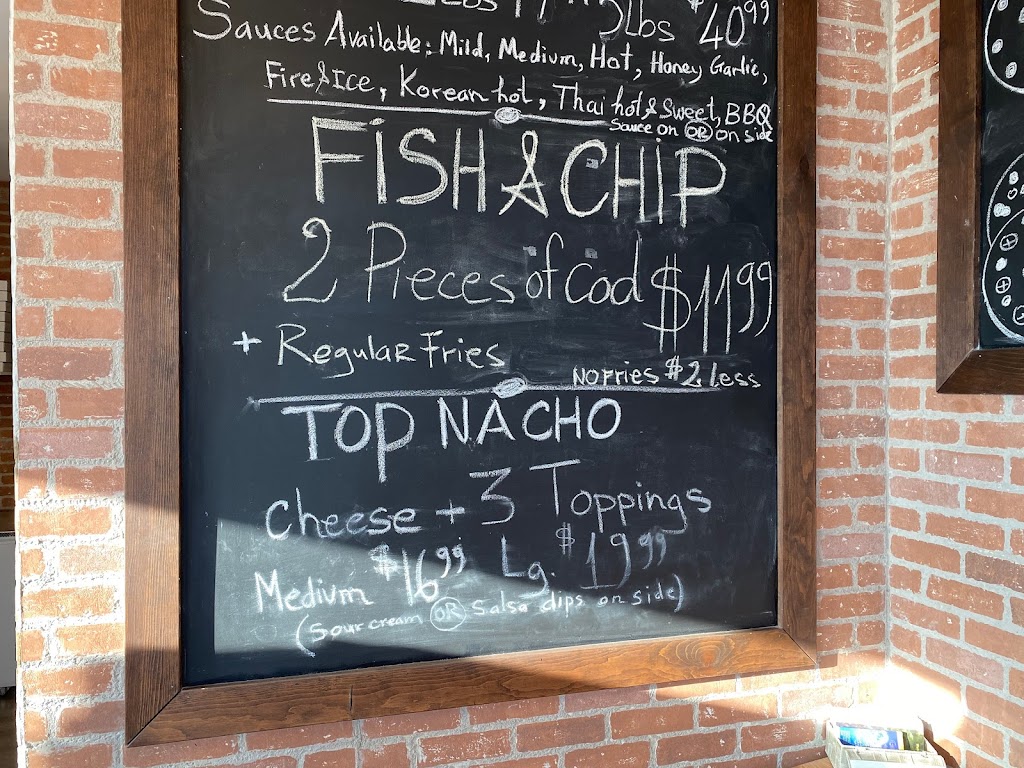 3lbs $40.99
Sauces Available: Mild, Medium, Hot, Honey Garlic,
Fire & Ice, Korean hot, Thai hot & Sweet, BBQ
Sauce on OR on side
FISH & CHIP
2 Pieces of Cod $11.99
+ Regular Fries
NO Fries $2 Less
TOP NACHO
Cheese + 3 Toppings
Medium $16.99 Lg. $19.99
(Sour cream OR Salsa dips on side)